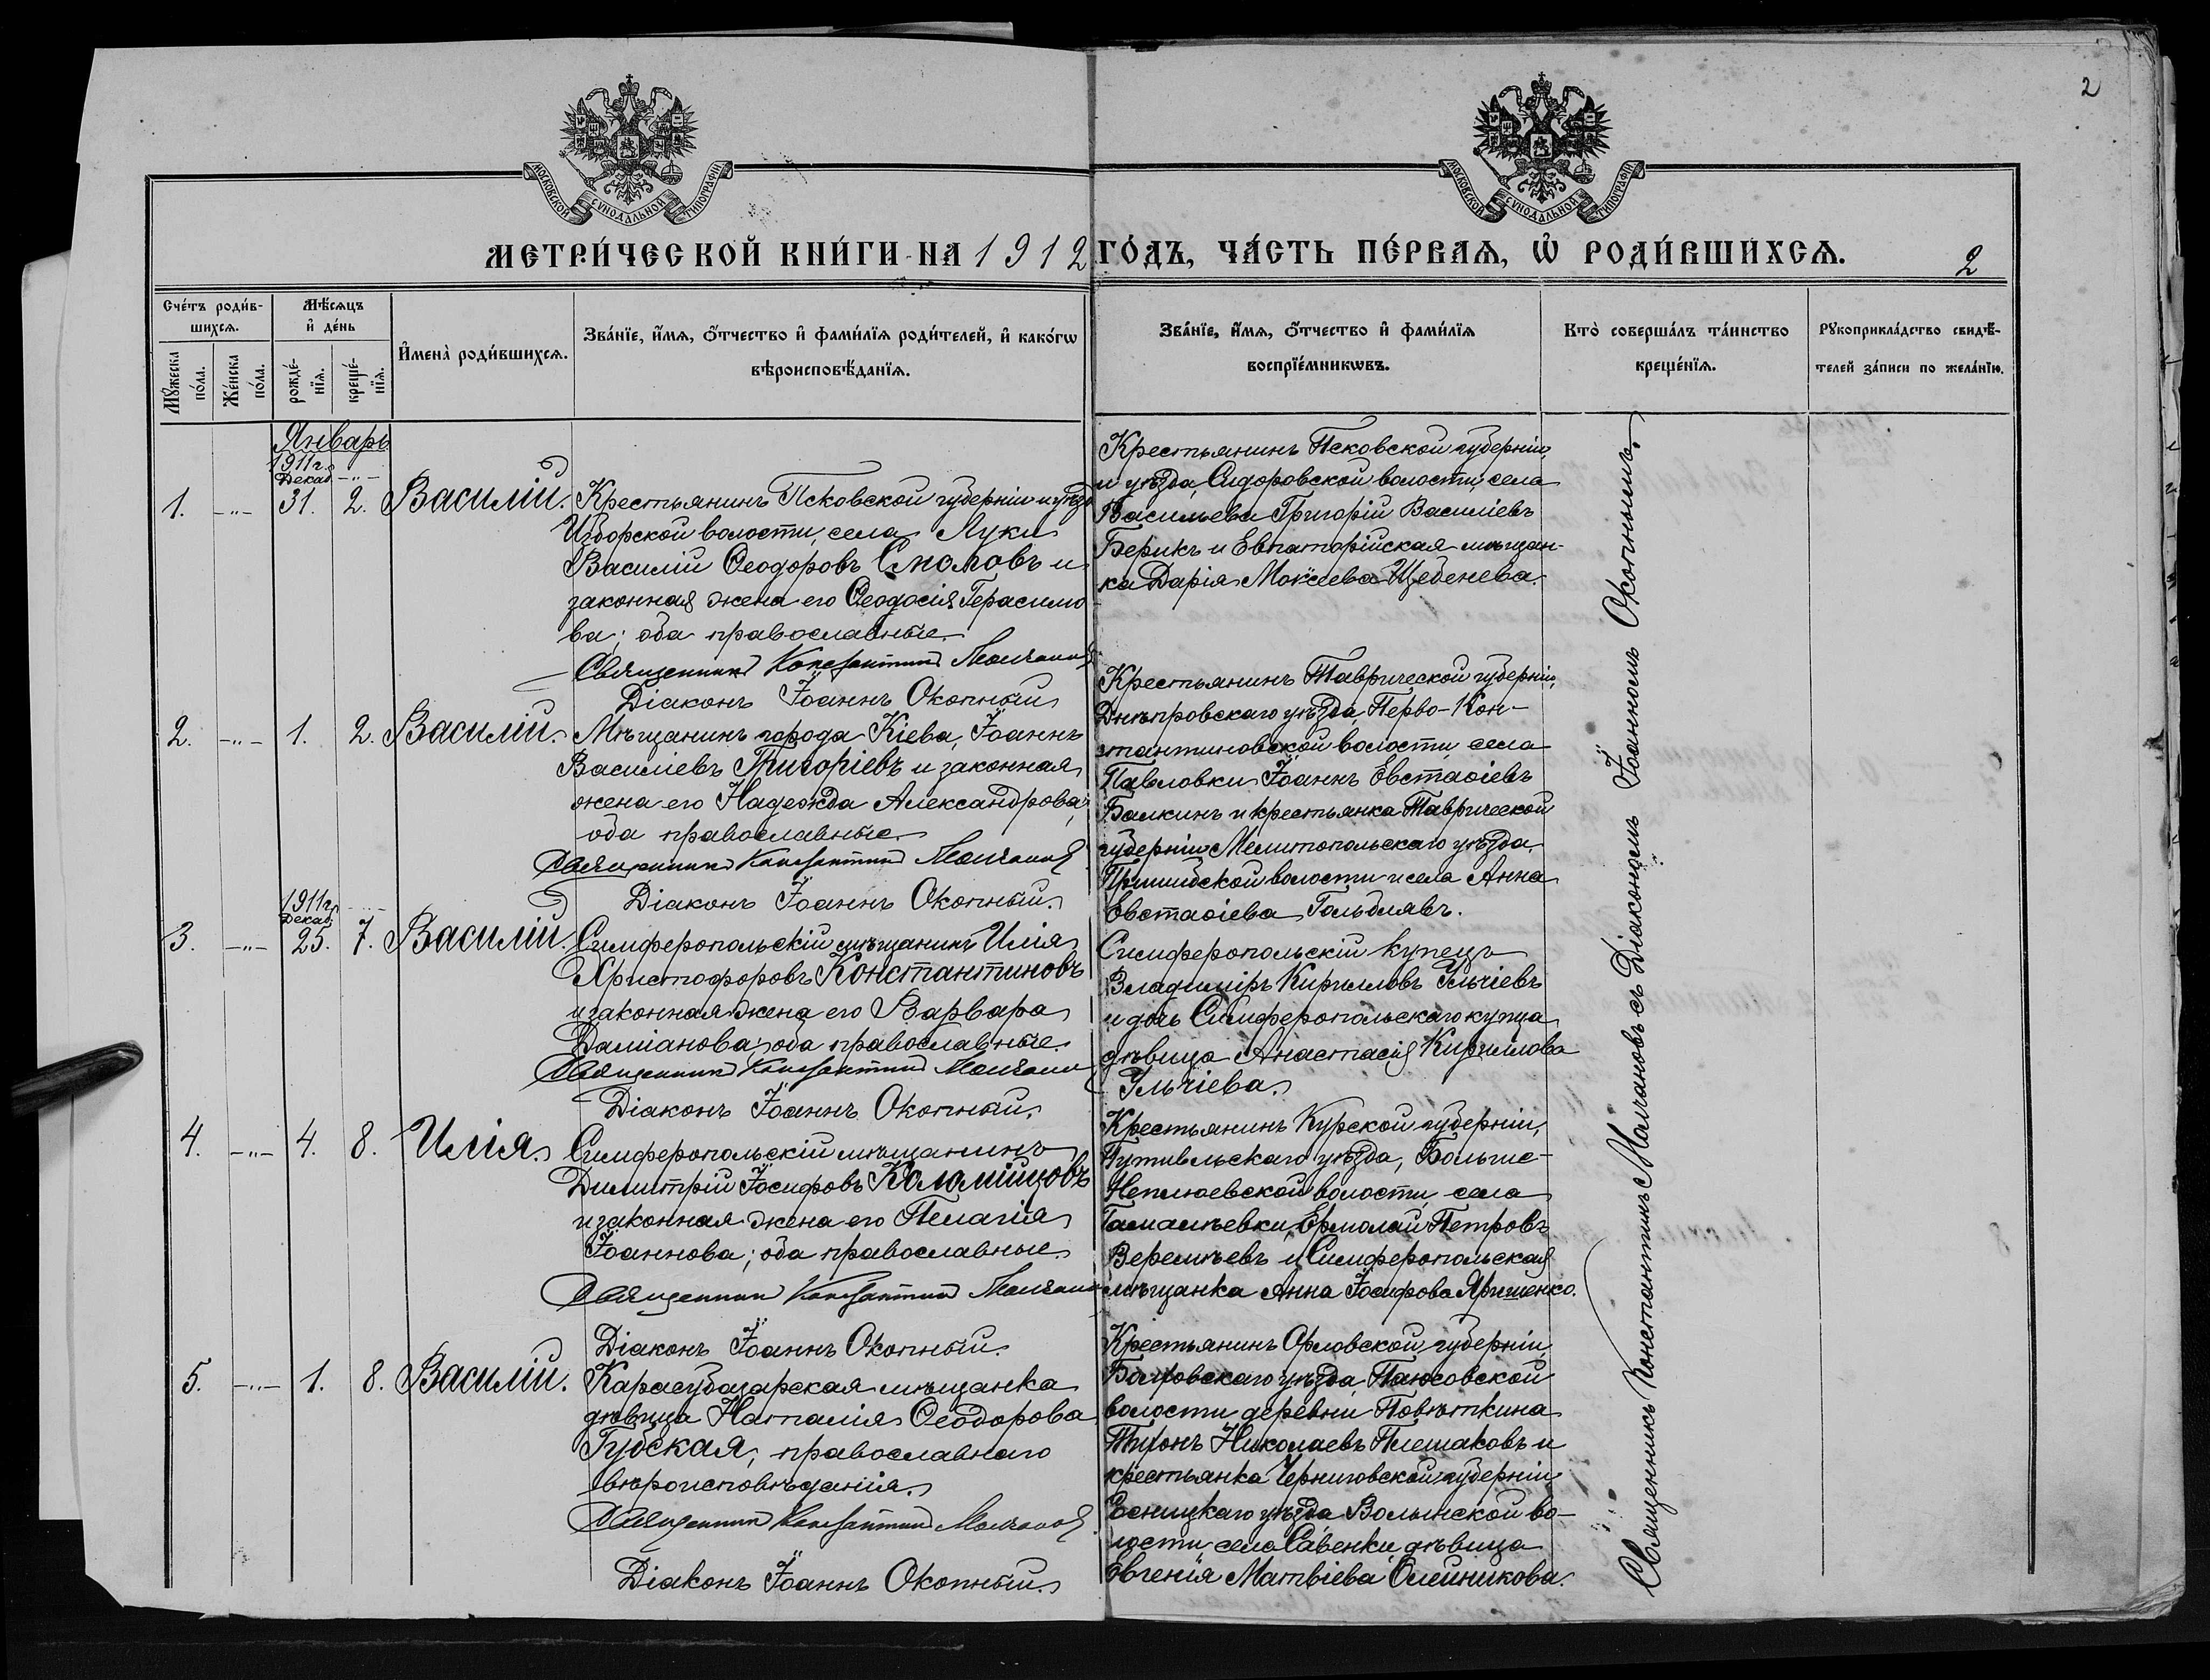 2
МОСКОВСКОЙ СѴНОДАЛЬНОЙ ТИПОГРАФІИ
МОСКОВСКОЙ СѴНОДАЛЬНОЙ ТИПОГРАФІИ
МЕТРИ́ЧЕСКОЙ КНИ́ГИ НА 1912 ГО́ДЪ, ЧА́СТЬ ПЕ́РВАѦ, Ѡ҆ РОДИ́ВШИХСѦ. 2
Сче́тъ роди́в-
шихсѧ.
Мꙋ́жеска по́ла.
Же́нска по́ла.
Мѣ́сѧцъ
и҆ де́нь
рожде́-
нїѧ.
креще́-
нїѧ.
И҆мена̀ роди́вшихсѧ.
Зва́нїе, и҆́мѧ, ѻ҆́тчество и҆ фами́лїѧ роди́телей, и҆ како́гѡ
вѣроисповѣ́данїѧ.
Зва́нїе, и҆́мѧ, ѻ҆́тчество и҆ фами́лїѧ
воспрїе́мникѡвъ.
Кто̀ соверша́лъ та́инство
креще́нїѧ.
Рꙋкоприкла́дство свидѣ́-
телей за́писи по жела́нїю.
Январь
1911 г.
Декаб. -"-
1. -"- 31. 2. Василій.
Крестьянинъ Псковской губерніи и уѣзда
Изборской волости, села Луки
Василій Ѳеодоровъ Смоловъ и
законная жена его Ѳеодосія Герасимо
ва; оба православные.
Священник Константин Молчанов
Діаконъ Іоаннъ Окопный
Крестьянинъ Псковской губерніи
и уѣзда, Сидоровской волости, села
Васильева Григорій Василіевъ
Берикъ и Евпаторійская мѣщан-
ка Дарія Моѵсеева Щебенева.
2. -"- 1. 2. Василій.
Мѣщанинъ города Кіева, Іоаннъ
Василіевъ Григоріевъ и законная
жена его Надежда Александрова;
оба православные.
Священник Константин Молчанов
Діаконъ Іоаннъ Окопный.
Крестьянинъ Таврической губерніи,
Днѣпровскаго уѣзда, Перво-Кон-
стантиновской волости, села
Павловки Іоаннъ Евстаѳіевъ
Балкинъ и крестьянка Таврической
губерніи Мелитопольскаго уѣзда,
Пришибской волости и села Анна
Евстаѳіева Гольблявъ.
1911 г.
Декаб.
3. -"- 25. 7. Василій.
Симферопольскій мѣщанинъ Илія
Христофоровъ Константиновъ
и законная жена его Варвара
Даміанова; оба православные.
Священник Константин Молчанов
Діаконъ Іоаннъ Окопный.
Симферопольскій купецъ
Владиміръ Кирилловъ Ульчіевъ
и дочь Симферопольскаго купца
дѣвица Анастасія Кириллова
Ульчіева.
4. -"- 4. 8. Илія.
Симферопольскій мѣщанинъ
Димитрій Іосифовъ Коломійцовъ
и законная жена его Пелагія
Іоаннова; оба православные.
Священник Константин Молчанов
Діаконъ Іоаннъ Окопный.
Крестьянинъ Курской губерніи,
Путивльскаго уѣзда, Больше-
Неплюевской волости, села
Гамалѣевки, Ермолай Петровъ
Веремѣевъ и Симферопольская
мѣщанка Анна Іосифова Яришенко.
5. -"- 1. 8. Василій.
Карасубазарская мѣщанка
дѣвица Наталія Ѳеодорова
Губская, православнаго
вѣроисповѣданія.
Священник Константин Молчанов
Діаконъ Іоаннъ Окопный.
Крестьянинъ Орловской губерніи,
Болховскаго уѣзда,
волости деревни Повѣткина
Тихонъ Николаевъ Плешаковъ и
крестьянка Черниговской губерніи
Сосницкаго уѣзда Волынской во-
лости села Савенки дѣвица
Евгенія Матвіева Олейникова.
Священникъ Константинъ Молчановъ съ Діакономъ Іоанномъ Окопнымъ.